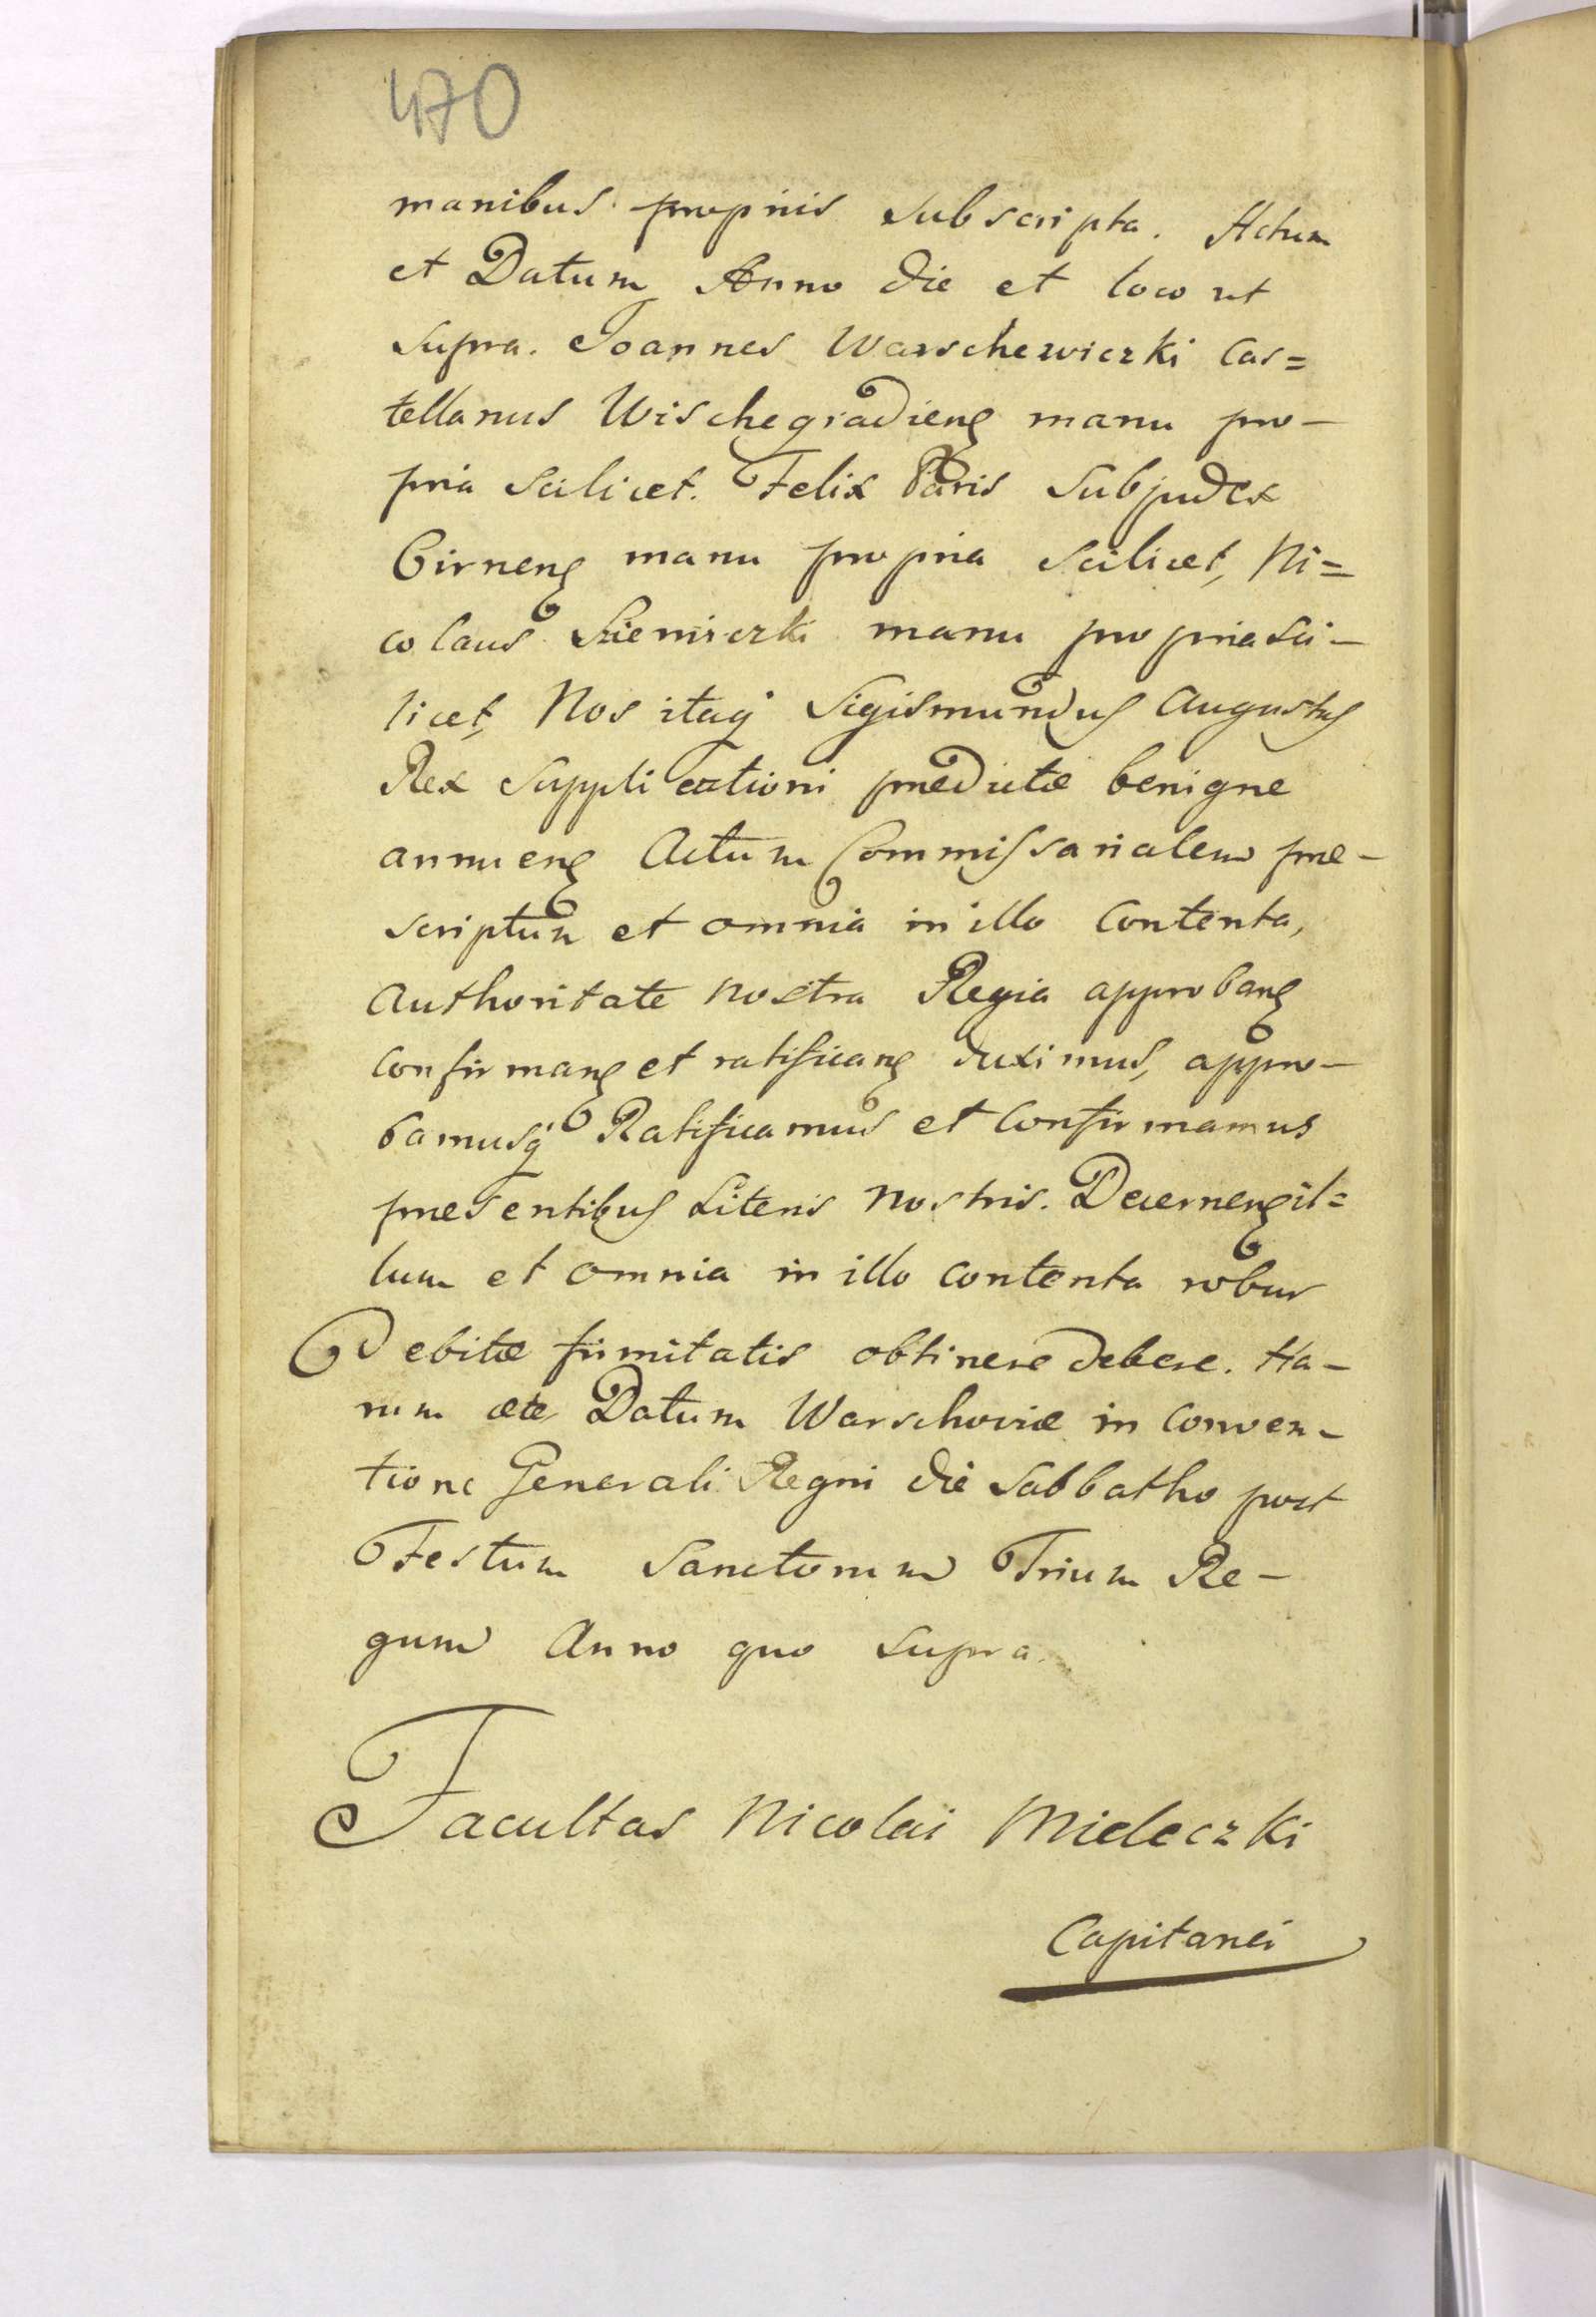 470
manibus propriis subscripta. Actum
et Datum Anno die et loco ut
supra. Joannes Warschewiczki Cas=
tellanus Wischegradieng manu pro-
pria scilicet. Felix Paris Subjudex
Cirneng manu propria scilicet, Ni=
colaus manu propria sci-
licet, Nos itaq Sigismundus Augustus
Rex Supplicationi prædictæ benigne
annueng Actum Commissarialem præ-
scriptum et omnia in illo Contenta,
Authoritate nostra Regia approbang
Confirmang et ratificang duximus, appro-
bamusq Ratificamus et Confirmamus
præsentibus Literis nostris. Decerneng il=
lum et omnia in illo contenta robur
Debitæ firmitatis obtinere debere. Ha-
rum etc, Datum Warschoviæ in Conven-
tione Generali Regni die Sabbatho post
Festum Sanctorum Trium Re-
gum Anno quo supra.
Facultas Nicolai Mieleczki
Capitanei